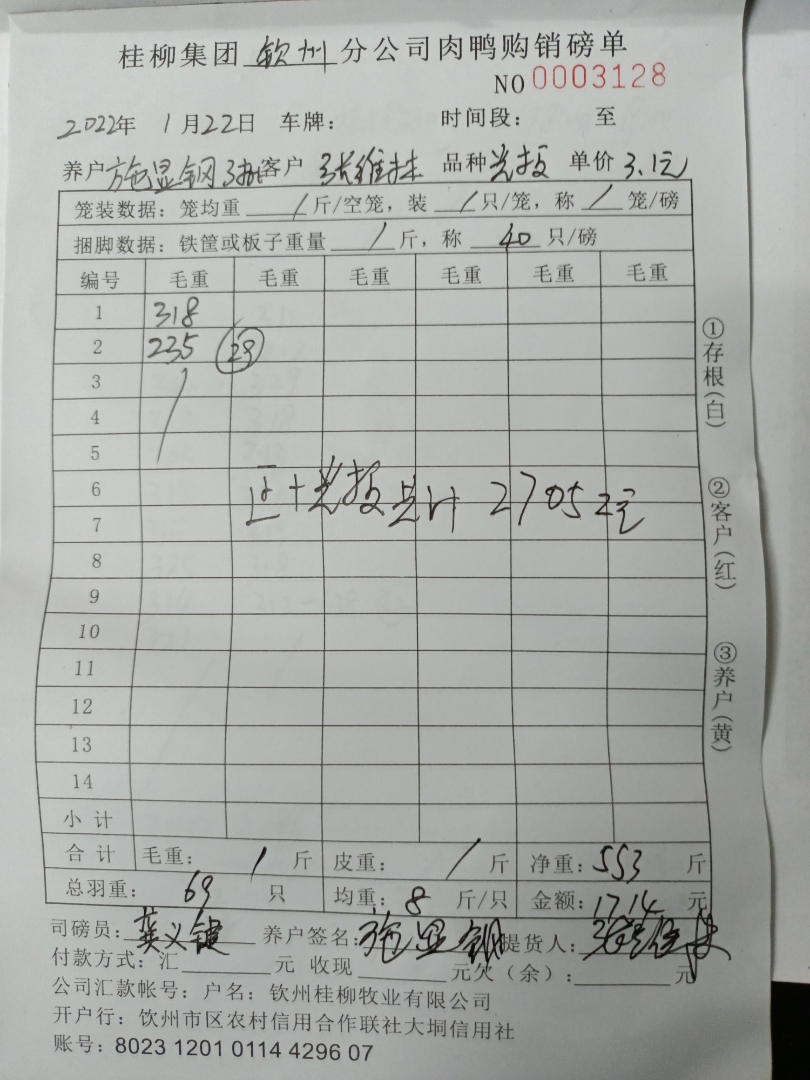 桂柳集团 钦州 分公司肉鸭购销磅单
NO 0003128
2022年 1月22日 车牌： 时间段： 至
养户 施显钢 客户 张维林 品种 单价 3.1元
笼装数据：笼均重 / 斤/空笼，装 / 只/笼，称 / 笼/磅
捆脚数据：铁筐或板子重量 / 斤，称 40 只/磅
编号 毛重 毛重 毛重 毛重 毛重 毛重
1 318
2 235 29
3
4
5
6
正+ 总计 2705元
7
8
9
10
11
12
13
14
小计
合计 毛重： / 斤 皮重： / 斤 净重：553 斤
总羽重： 69 只 均重：8 斤/只 金额：1714 元
司磅员：龚义键 养户签名：施显钢 提货人：张维林
付款方式：汇 元 收现 元欠（余）： 元
公司汇款帐号：户名：钦州桂柳牧业有限公司
开户行：钦州市区农村信用合作联社大垌信用社
账号：8023 1201 0114 4296 07
①存根（白）
②客户（红）
③养户（黄）